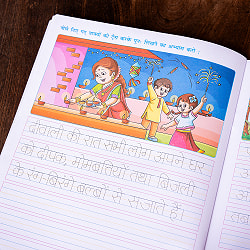 नीचे दिए गए वाक्यों को ट्रेस करके पुनः लिखने का अभ्यास करो :
दीवाली की रात सभी लोग अपने घर
को दीपक, मोमबत्तियों तथा बिजली
के रंग-बिरंगे बल्बों से सजाते हैं।